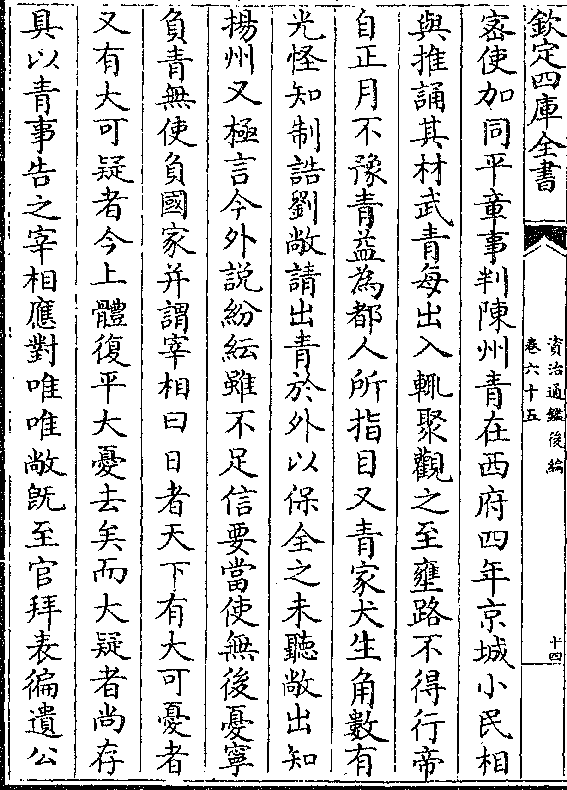 欽定四庫全書
資治通鑑後編
卷六十五
十四
密使加同平章事判陳州青在西府四年京城小民相
與推誦其材武青每出入輒聚觀之至壅路不得行帝
自正月不豫青益為都人所指目又青家犬生角數有
光怪知制誥劉敞請出青於外以保全之未聽敞出知
揚州又極言今外說紛紜雖不足信要當使無後憂寧
負青無使負國家并謂宰相曰日者天下有大可憂者
又有大可疑者今上體復平大憂去矣而大疑者尚存
具以青事告之宰相應對唯唯敞既至官拜表徧遺公